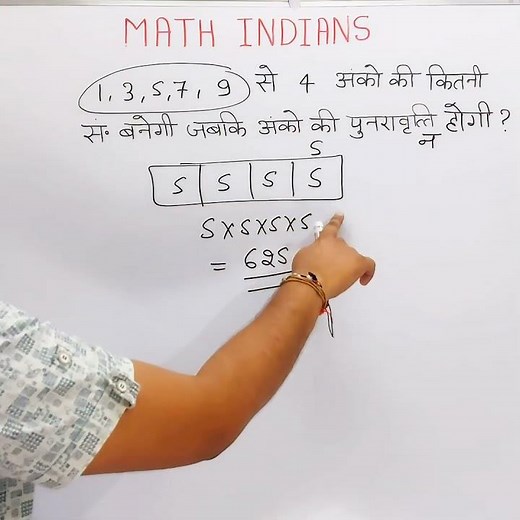 MATH INDIANS
1, 3, 5, 7, 9 से 4 अंको की कितनी
सं॰ बनेगी जबकि अंको की पुनरावृत्ति होगी ?
न
5
5 5 5 5
5×5×5×5
= 625